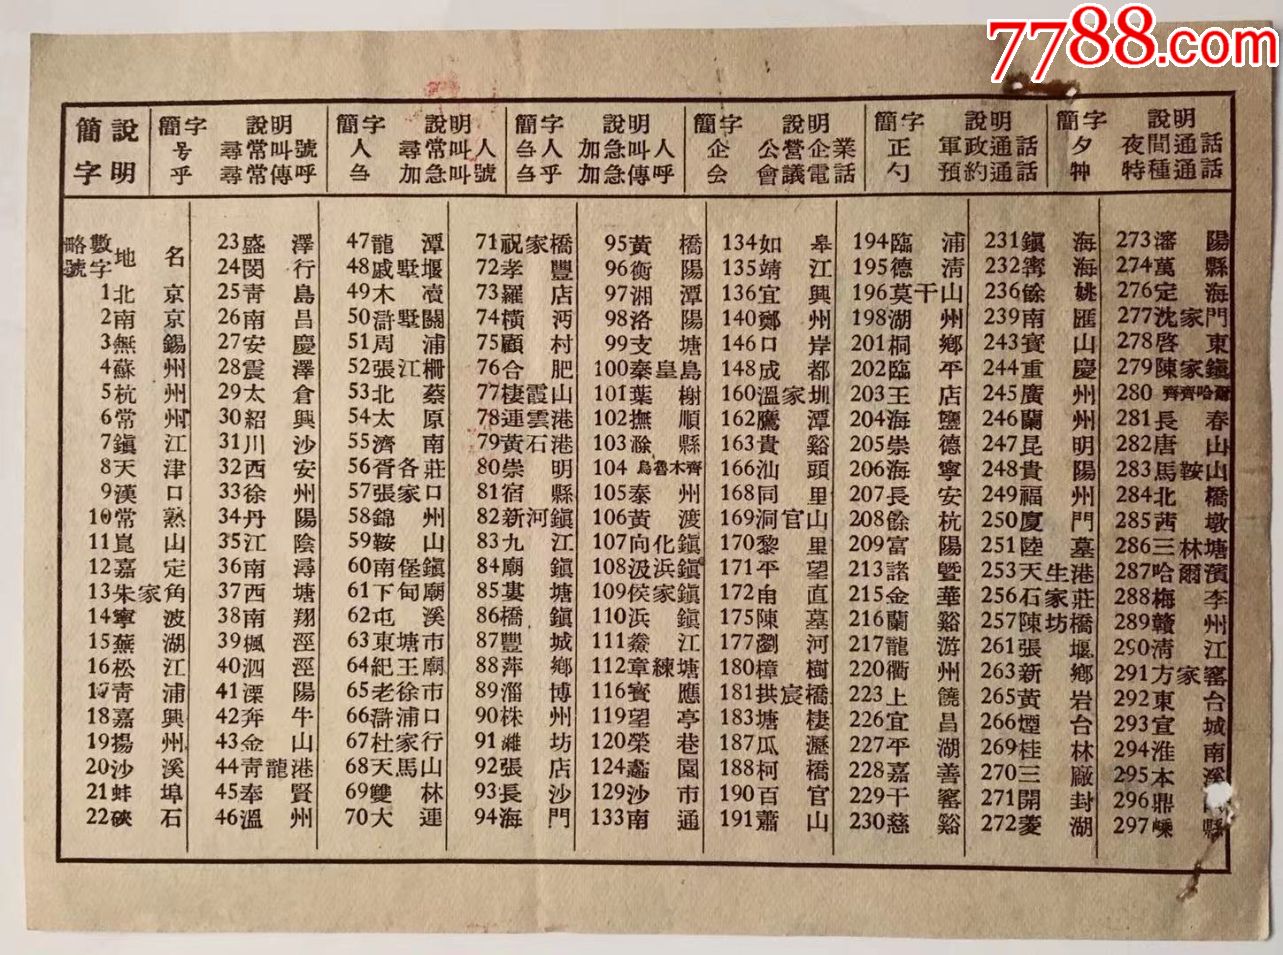 7788.com
簡字 說明
簡字 說明
号 尋常叫號
乎 尋常傳呼
簡字 說明
人 尋常叫人
刍 加急叫號
簡字 說明
刍人 加急叫人
刍乎 加急傳呼
簡字 說明
企 公營企業
会 會議電話
簡字 說明
正 軍政通話
勺 預約通話
簡字 說明
夕 夜間通話
特種通話
數字略號 地名
1 北京
2 南京
3 無錫
4 蘇州
5 杭州
6 常州
7 鎮江
8 天津
9 漢口
10 常熟
11 崑山
12 嘉定
13 朱家角
14 寧波
15 蕪湖
16 松江
17 青浦
18 嘉興
19 揚州
20 沙溪
21 蚌埠
22 硤石
23 盛澤
24 閔行
25 青島
26 南昌
27 安慶
28 震澤
29 太倉
30 紹興
31 川沙
32 西安
33 徐州
34 丹陽
35 江陰
36 南潯
37 西塘
38 南翔
39 楓涇
40 泗涇
41 溧陽
42 奔牛
43 金山
44 青龍港
45 奉賢
46 溫州
47 龍潭
48 戚墅堰
49 木凟
50 滸墅關
51 周浦
52 張江柵
53 北蔡
54 太原
55 濟南
56 胥各莊
57 張家口
58 錦州
59 鞍山
60 南堡鎮
61 下甸廟
62 屯溪
63 東塘市
64 紀王廟
65 老徐市
66 滸浦口
67 杜家行
68 天馬山
69 雙林
70 大連
71 祝家橋
72 孝豐
73 羅店
74 橫沔
75 顧村
76 合肥
77 棲霞山
78 連雲港
79 黃石港
80 崇明
81 宿縣
82 新河鎮
83 九江
84 廟鎮
85 婁塘
86 橋鎮
87 豐城
88 萍鄉
89 淄博
90 株州
91 濰坊
92 張店
93 長沙
94 海門
95 黃橋
96 衡陽
97 湘潭
98 洛陽
99 支塘
100 秦皇島
101 葉榭
102 撫順
103 滁縣
104 烏魯木齊
105 泰州
106 黃渡
107 向化鎮
108 汲浜鎮
109 侯家鎮
110 浜鎮
111 綦江
112 章練塘
116 寶應
119 望亭
120 榮巷
124 蠡園
129 沙市
133 南通
134 如皋
135 靖江
136 宜興
140 鄭州
146 口岸
148 成都
160 溫家圳
162 鷹潭
163 貴谿
166 汕頭
168 同里
169 洞官山
170 黎里
171 平望
172 甪直
175 陳墓
177 瀏河
180 樟樹
181 拱宸橋
183 塘棲
187 瓜瀝
188 柯橋
190 百官
191 蕭山
194 臨浦
195 德清
196 莫干山
198 湖州
201 桐鄉
202 臨平
203 王店
204 海鹽
205 崇德
206 海寧
207 長安
208 餘杭
209 富陽
213 諸暨
215 金華
216 蘭谿
217 龍游
220 衢州
223 上饒
226 宜昌
227 平湖
228 嘉善
229 干窰
230 慈谿
231 鎮海
232 寗海
236 餘姚
239 南匯
243 寶山
244 重慶
245 廣州
246 蘭州
247 昆明
248 貴陽
249 福州
250 廈門
251 陸墓
253 天生港
256 石家莊
257 陳坊橋
261 張堰
263 新鄉
265 黃岩
266 煙台
269 桂林
270 三廠
271 開封
272 菱湖
273 瀋陽
274 萬縣
276 定海
277 沈家門
278 啓東
279 陳家鎮
280 齊齊哈爾
281 長春
282 唐山
283 馬鞍山
284 北橋
285 茜墩
286 三林塘
287 哈爾濱
288 梅李
289 贛州
290 清江
291 方家窰
292 東台
293 宣城
294 淮南
295 本溪
296 鼎
297 嵊縣